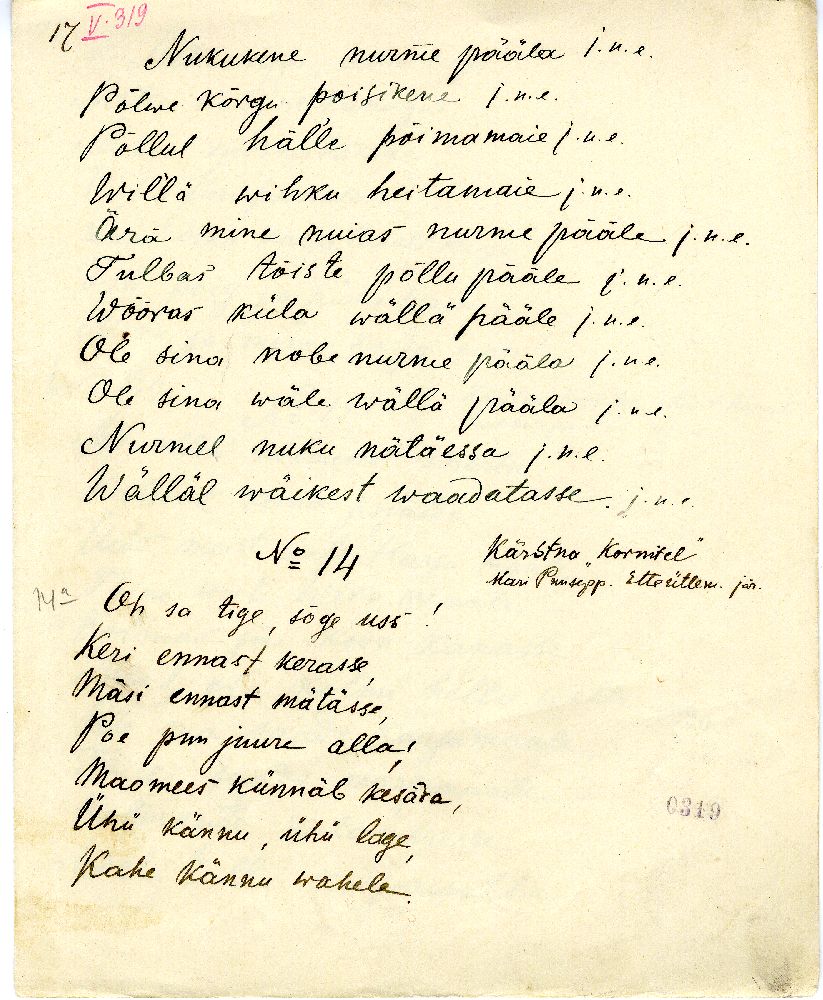 17 V. 319
Nukukene nurme pääla j. n. e.
Põlwe kõrgu poisikene j. n. e.
Põllul hälle põimamaie j. n. e.
Willä wihku heitamaie j. n. e.
Ärä mine muias nurme pääle j. n. e.
Tulbas tõiste põllu pääle j. n. e.
Wõõras küla wällä pääle j. n. e.
Ole sina nobe nurme pääla j. n. e.
Ole sina wäle wällä pääla j. n. e.
Nurmel nuku nätäessa j. n. e.
Wälläl wäikest waadatasse. j. n. e.
Kärstna "Kornitel"
No 14
Mari Puusepp. Etteütlem. jär.
14a Oh sa tige, sõge uss!
Keri ennast kerasse,
Mäsi ennast mätässe,
Poe puu juure alla!
Maomees künnäb kesära,
Ühü kännu, ühü lage,
Kahe kännu wahele.
0319